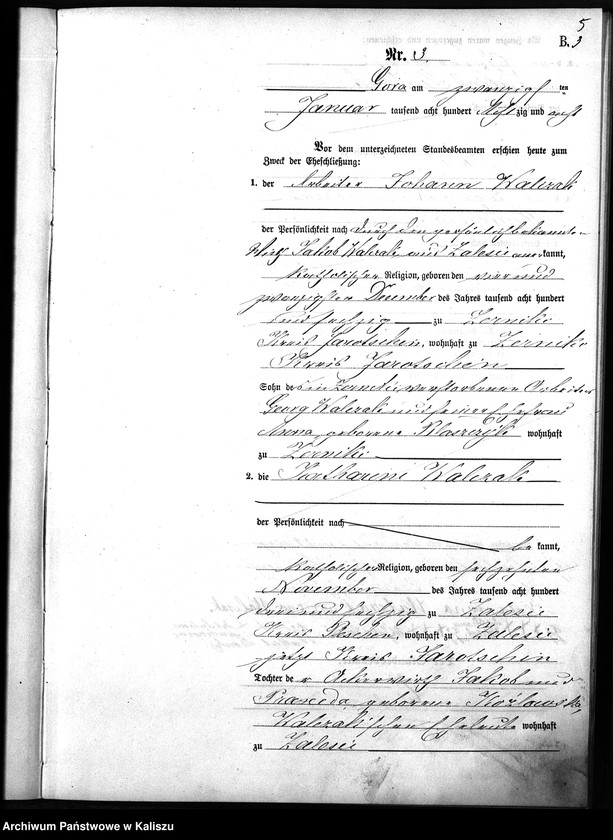 5
B. 3
Nr. 3.
Gora am zwanzigsten
Januar tausend acht hundert acht
zig und acht
Vor dem unterzeichneten Standesbeamten erschien heute zum
Zweck der Eheschließung:
1. der Arbeiter Johann Walczak
der Persönlichkeit nach durch den persönlich bekannten
Wirth Jakob Walczak aus Zalesie anerkannt,
katholischer Religion, geboren den vier und
zwanzigsten December des Jahres tausend acht hundert
und sechzig zu Zerniki
Kreis Jarotschin, wohnhaft zu Zerniki
Kreis Jarotschin
Sohn des in Zerniki verstorbenen Arbeiters
Georg Walczak und seiner Ehefrau
Anna geborene Blaszczyk wohnhaft
zu Zerniki
2. die Katharina Walczak
der Persönlichkeit nach
be kannt,
katholischer Religion, geboren den sechzehnten
November des Jahres tausend acht hundert
drei und sechzig zu Zalesie
Kreis Pleschen, wohnhaft zu Zalesie
jetzt Kreis Jarotschin
Tochter der Ackerwirth Jakob und
Praxeda geborene
Walczak'schen Eheleute wohnhaft
zu Zalesie
Archiwum Państwowe w Kaliszu